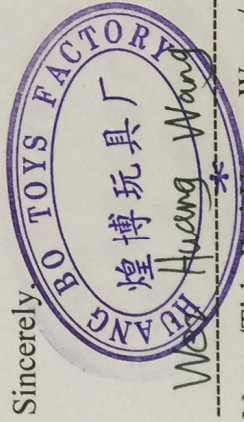 Sincerely,
HUANG BO TOYS FACTORY
煌博玩具厂
Wen Huang Wang
*